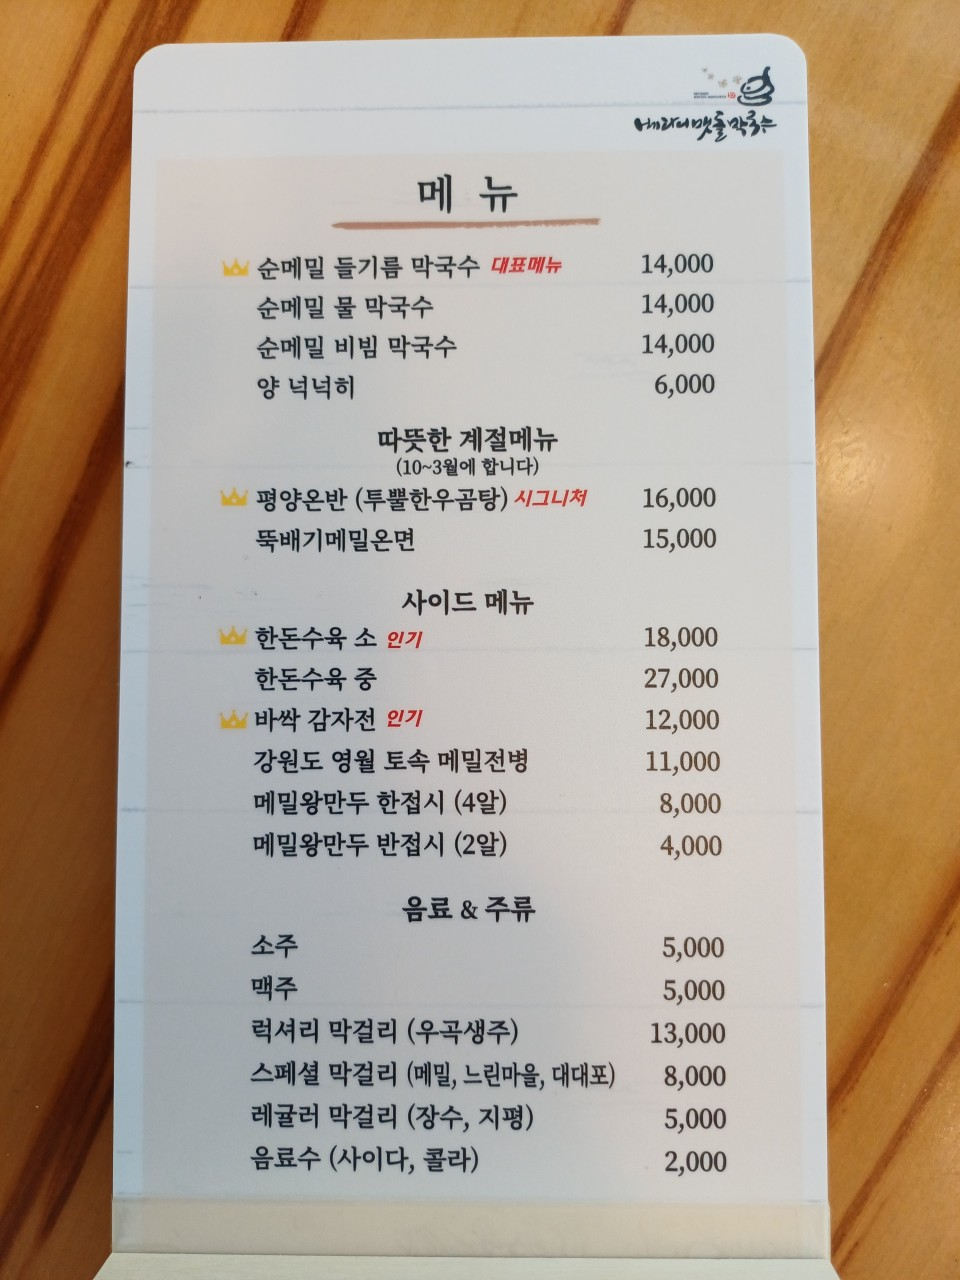 메라니맷돌막국수
메 뉴
순메밀 들기름 막국수 대표메뉴 14,000
순메밀 물 막국수 14,000
순메밀 비빔 막국수 14,000
양 넉넉히 6,000
따뜻한 계절메뉴
(10~3월에 합니다)
평양온반 (투뿔한우곰탕) 시그니처 16,000
뚝배기메밀온면 15,000
사이드 메뉴
한돈수육 소 인기 18,000
한돈수육 중 27,000
바싹 감자전 인기 12,000
강원도 영월 토속 메밀전병 11,000
메밀왕만두 한접시 (4알) 8,000
메밀왕만두 반접시 (2알) 4,000
음료 & 주류
소주 5,000
맥주 5,000
럭셔리 막걸리 (우곡생주) 13,000
스페셜 막걸리 (메밀, 느린마을, 대대포) 8,000
레귤러 막걸리 (장수, 지평) 5,000
음료수 (사이다, 콜라) 2,000